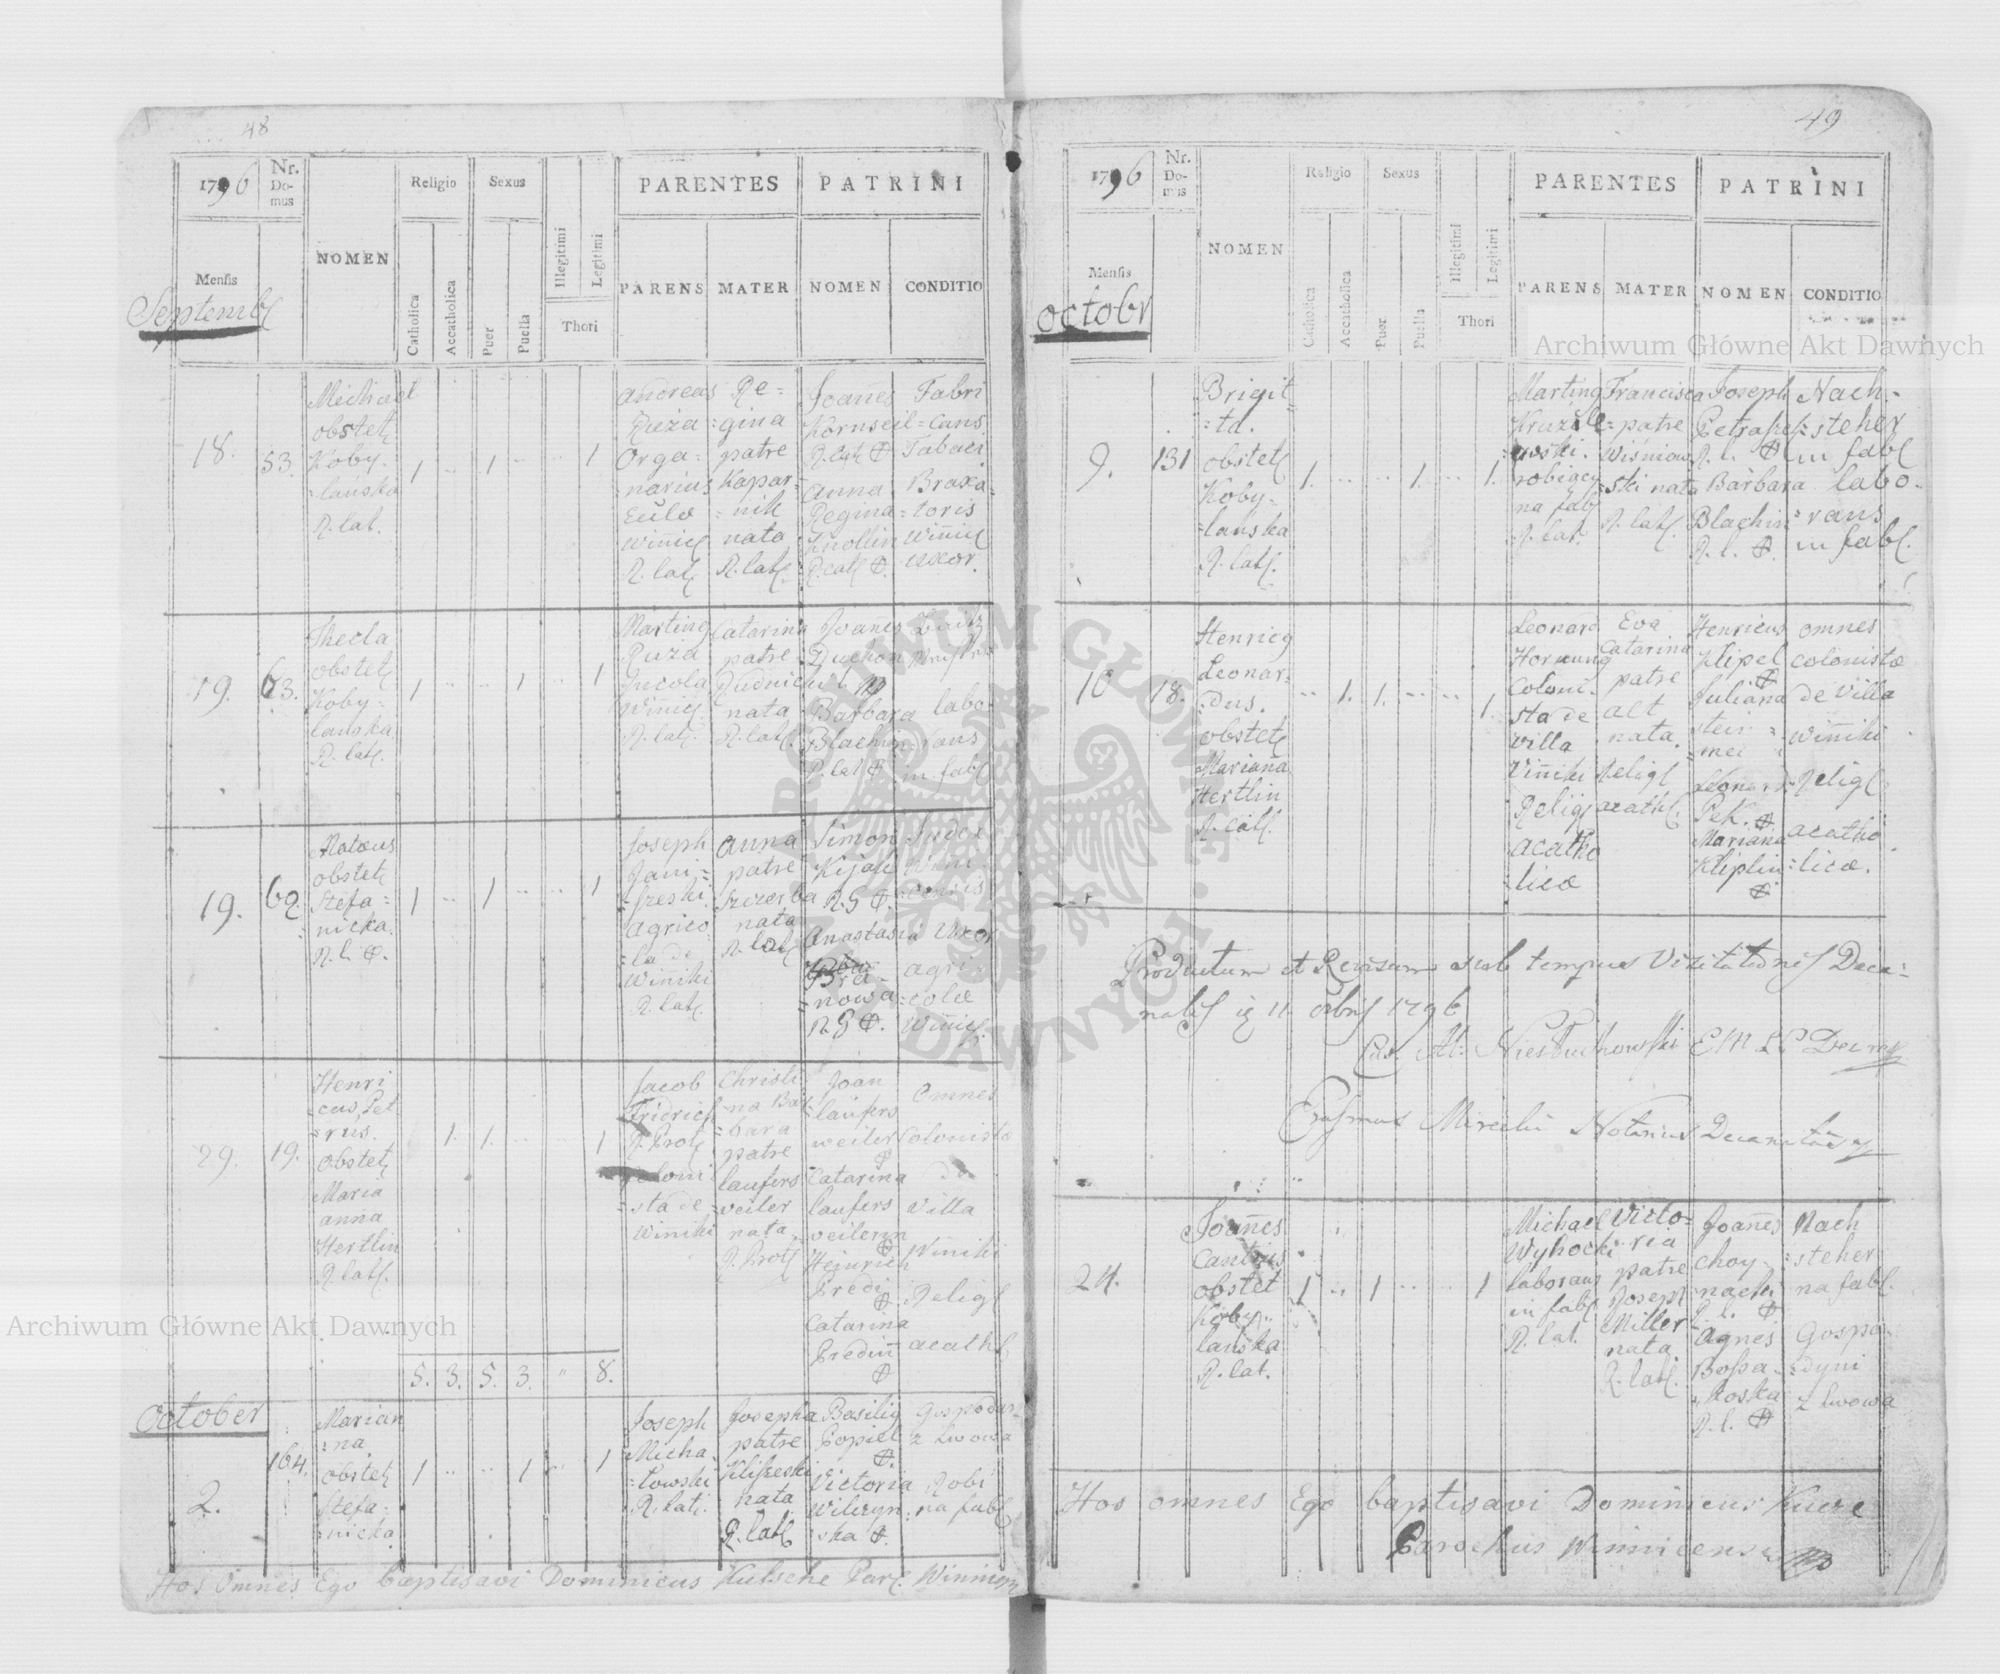 48
1796
Nr.
Do-
mus
NOMEN
Religio
Sexus
PARENTES
PATRINI
Mensis
Septembr
Catholica
Accatholica
Puer
Puella
Illegitimi
Legitimi
Thori
PARENS
MATER
NOMEN
CONDITIO
18.
53.
Michael
obstet
Koby-
=lanska
R. lat.
1
1
1
Andreas
Ruza
Orga=
narius
Winic
R. lat
Re=
=gina
patre
Kapar=
=nik
nata
R. lat
Joanes
R. cat
Anna
Regina
Knollin
R. cat
Fabri
=cans
Tabaci
Braxa=
=toris
Winic
uxor.
19.
63.
Thecla
obstet
Koby=
lanska
R. lat.
1
1
1
Marting
Ruza
Incola
Winic
R. lat.
Catarina
patre
Dudnicki
nata
R. lat.
Joanes
Duchon
Barbara
Blachin
R. lat
labo=
=rans
in fabl
19.
62.
Mateus
obstet
Stefa=
=nicka.
R. l.
1
1
1
Joseph
Jani=
=szeski
agrico
=la de
Winiki
R. lat.
Anna
patre
Szczerba
nata
R. lat
Simon
Kijak
R. G
Anastasia
=nowa
R G
Judex
Uxor
agri
=colæ
Winic
29.
19.
Henri
=cus Pet
=rus.
obstet
Maria
anna
Hertlin
R. lat.
1.
1.
1
Jacob
Fridrich
R. Prot
Coloni
=sta de
Winiki
Christi
=na Bar
=bara
patre
laufers
=veiler
nata
R. Prot
Joan
laufers
weiler
Catarina
laufers
veilerin
Heinrich
Predi
Catarina
Predin
Omnes
Colonistæ
de
Villa
Winiki
Religl
acath
5. 3. 5. 3. " 8.
October
2.
164.
Marian
=na
obstet
Stefa=
=nicka
1
1
1
Joseph
Micha
=lowski
R. lat.
Josepha
patre
Kliszeski
nata
R. lat
Basilig
Popiel
Victoria
Wilczyn
ska
Gospodar
z Lwowa
Robi
na fabl
Hos Omnes Ego baptisavi Dominicus Kutsche Par. Winnicen
49
1796
Nr.
Do-
mus
NOMEN
Religio
Sexus
PARENTES
PATRINI
Mensis
octobr
Catholica
Accatholica
Puer
Puella
Illegitimi
Legitimi
Thori
PARENS
MATER
NOMEN
CONDITIO
9.
131
Brigit=
=ta.
obstet
Koby=
=lanska
R. lat.
1.
1.
1.
Marting
robiący
na fab
R. lat.
Francisca
=patre
Wisniow
=ski nata
R. lat.
Joseph
R. l.
Barbara
Blachin
R. l.
Nach-
=steher
in fabl
labo-
=rans
in fabl.
10
18.
Henricg
Leonar=
=dus.
obstet
Mariana
Hertlin
R. cat.
1.
1.
1.
Leonard
Hornung
Coloni=
sta de
Villa
Viniki
Relig
acatho
=licæ
Eva
Catarina
patre
alt
nata.
Religl
acathl.
Henricus
Klipel
Juliana
stein
=mei
Leonard
Pek.
Mariana
Kliplin
omnes
colonistæ
de Villa
Winiki
Religl
acatho
=licæ.
Productum et Revisum sub tempus Visitationis Deca=
nalis 11 8bris 1796
Erasmus Notarius Decanatus
24.
Joanes
Cantius
obstet
Koby=
lanska
R. lat.
1
1
1
Michael
Wyhocki
laborans
in fabl
R. lat.
Victo=
ria
patre
Joseph
Miller
nata
R. lat.
Joanes
Choy=
nacki
R. l.
Agnes
R. l.
Nach
=steher
na fabl.
Gospo
=dyni
z Lwowa
Hos omnes Ego baptisavi Dominicus
Parochus Winnicensis
Archiwum Główne Akt Dawnych
Archiwum Główne Akt Dawnych
ARCHIWUM GŁÓWNE AKT DAWNYCH